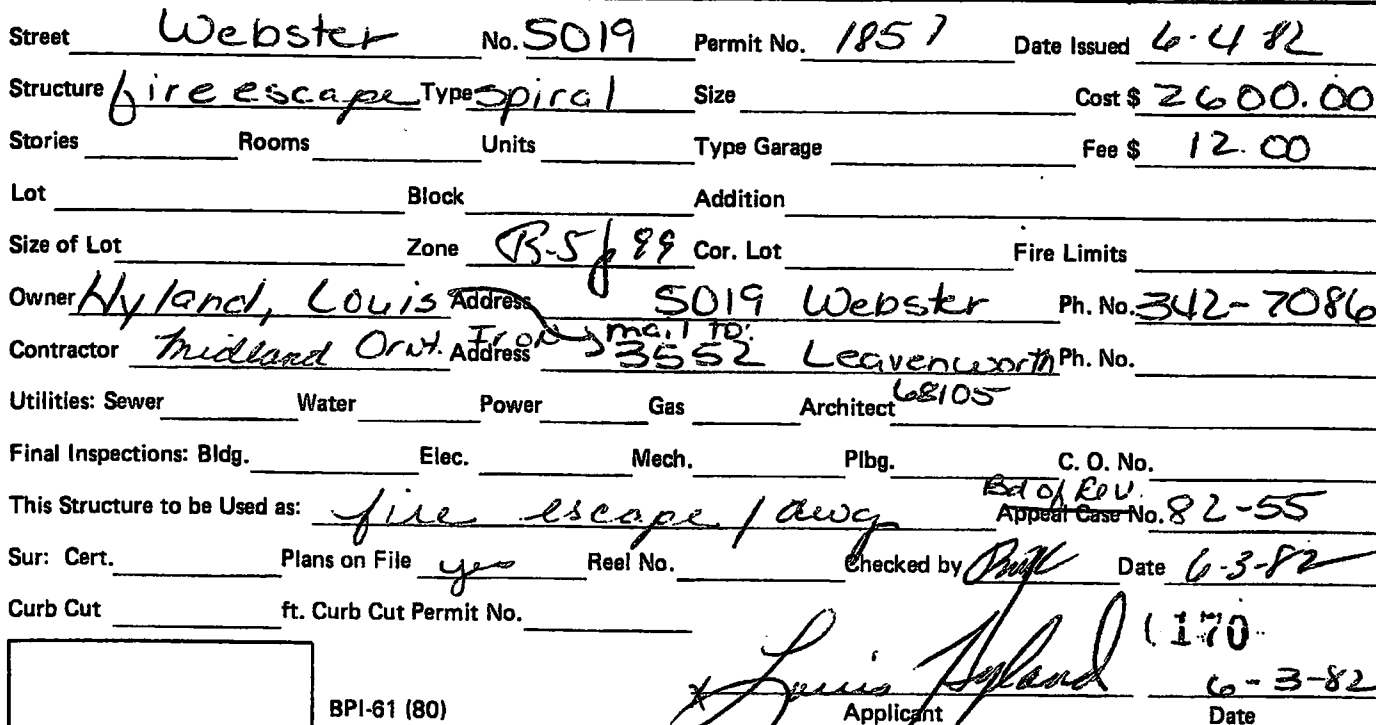 Street Webster No. 5019 Permit No. 1857 Date Issued 6-4-82
Structure fire escape Type spiral Size Cost $ 2600.00
Stories Rooms Units Type Garage Fee $ 12.00
Lot Block Addition
Size of Lot Zone R-5 Cor. Lot Fire Limits
Owner Hyland, Louis Address 5019 Webster Ph. No. 342-7086
mail to:
Contractor Midland Ornt. Iron Address 3552 Leavenworth Ph. No.
68105
Utilities: Sewer Water Power Gas Architect
Final Inspections: Bldg. Elec. Mech. Plbg. C. O. No.
Bd of Rev.
This Structure to be Used as: fire escape / dwg Appeal Case No. 82-55
Sur: Cert. Plans on File yes Reel No. Checked by Date 6-3-82
Curb Cut ft. Curb Cut Permit No.
170
x Louis Hyland 6-3-82
BPI-61 (80) Applicant Date